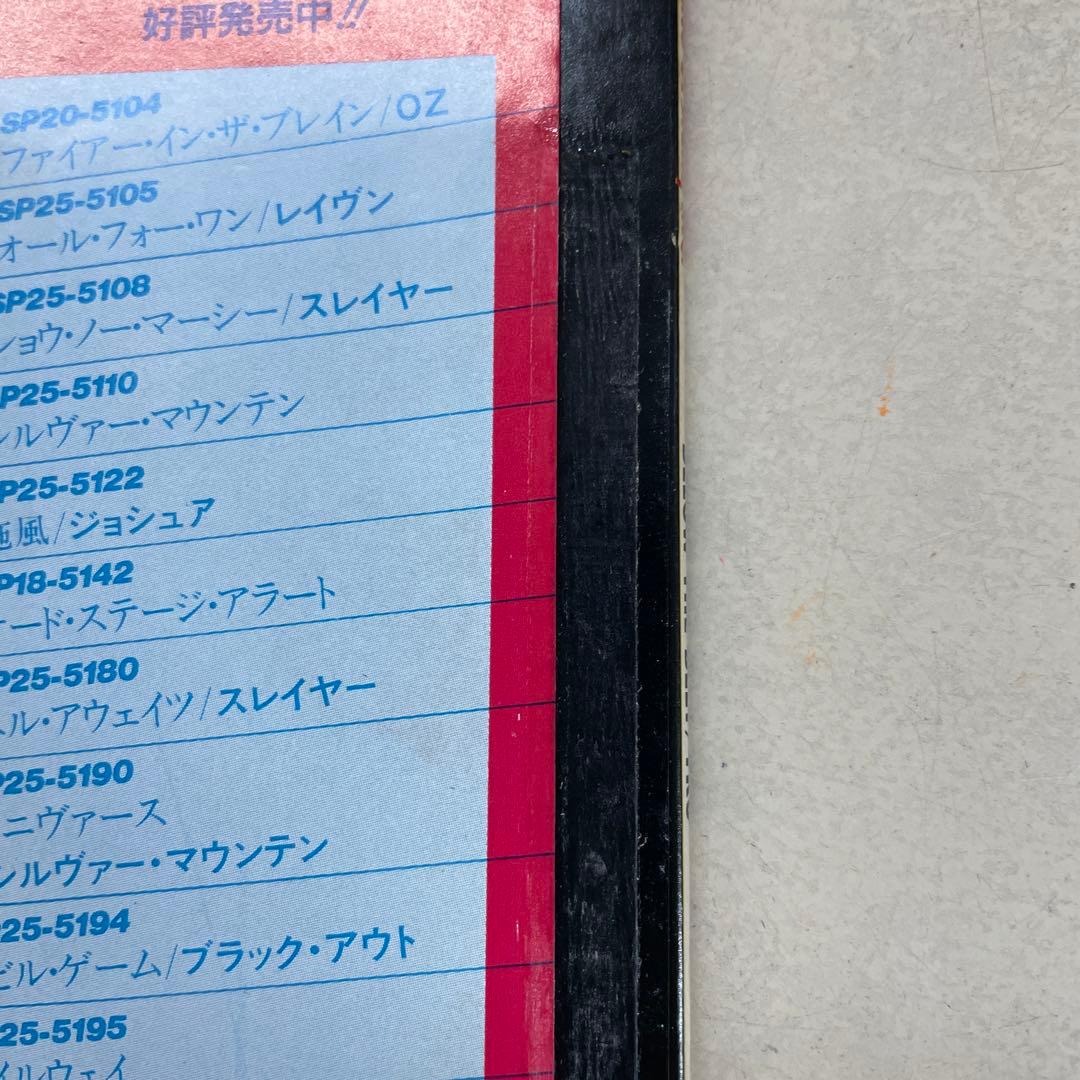 好評発売中!!
SP20-5104
ファイアー・イン・ザ・ブレイン/OZ
SP25-5105
オール・フォー・ワン/レイヴン
SP25-5108
ショウ・ノー・マーシー/スレイヤー
P25-5110
シルヴァー・マウンテン
P25-5122
風/ジョシュア
P18-5142
ード・ステージ・アラート
P25-5180
ヘル・アウェイツ/スレイヤー
P25-5190
ニヴァース
シルヴァー・マウンテン
25-5194
ビル・ゲーム/ブラック・アウト
25-5195
イルウェイ